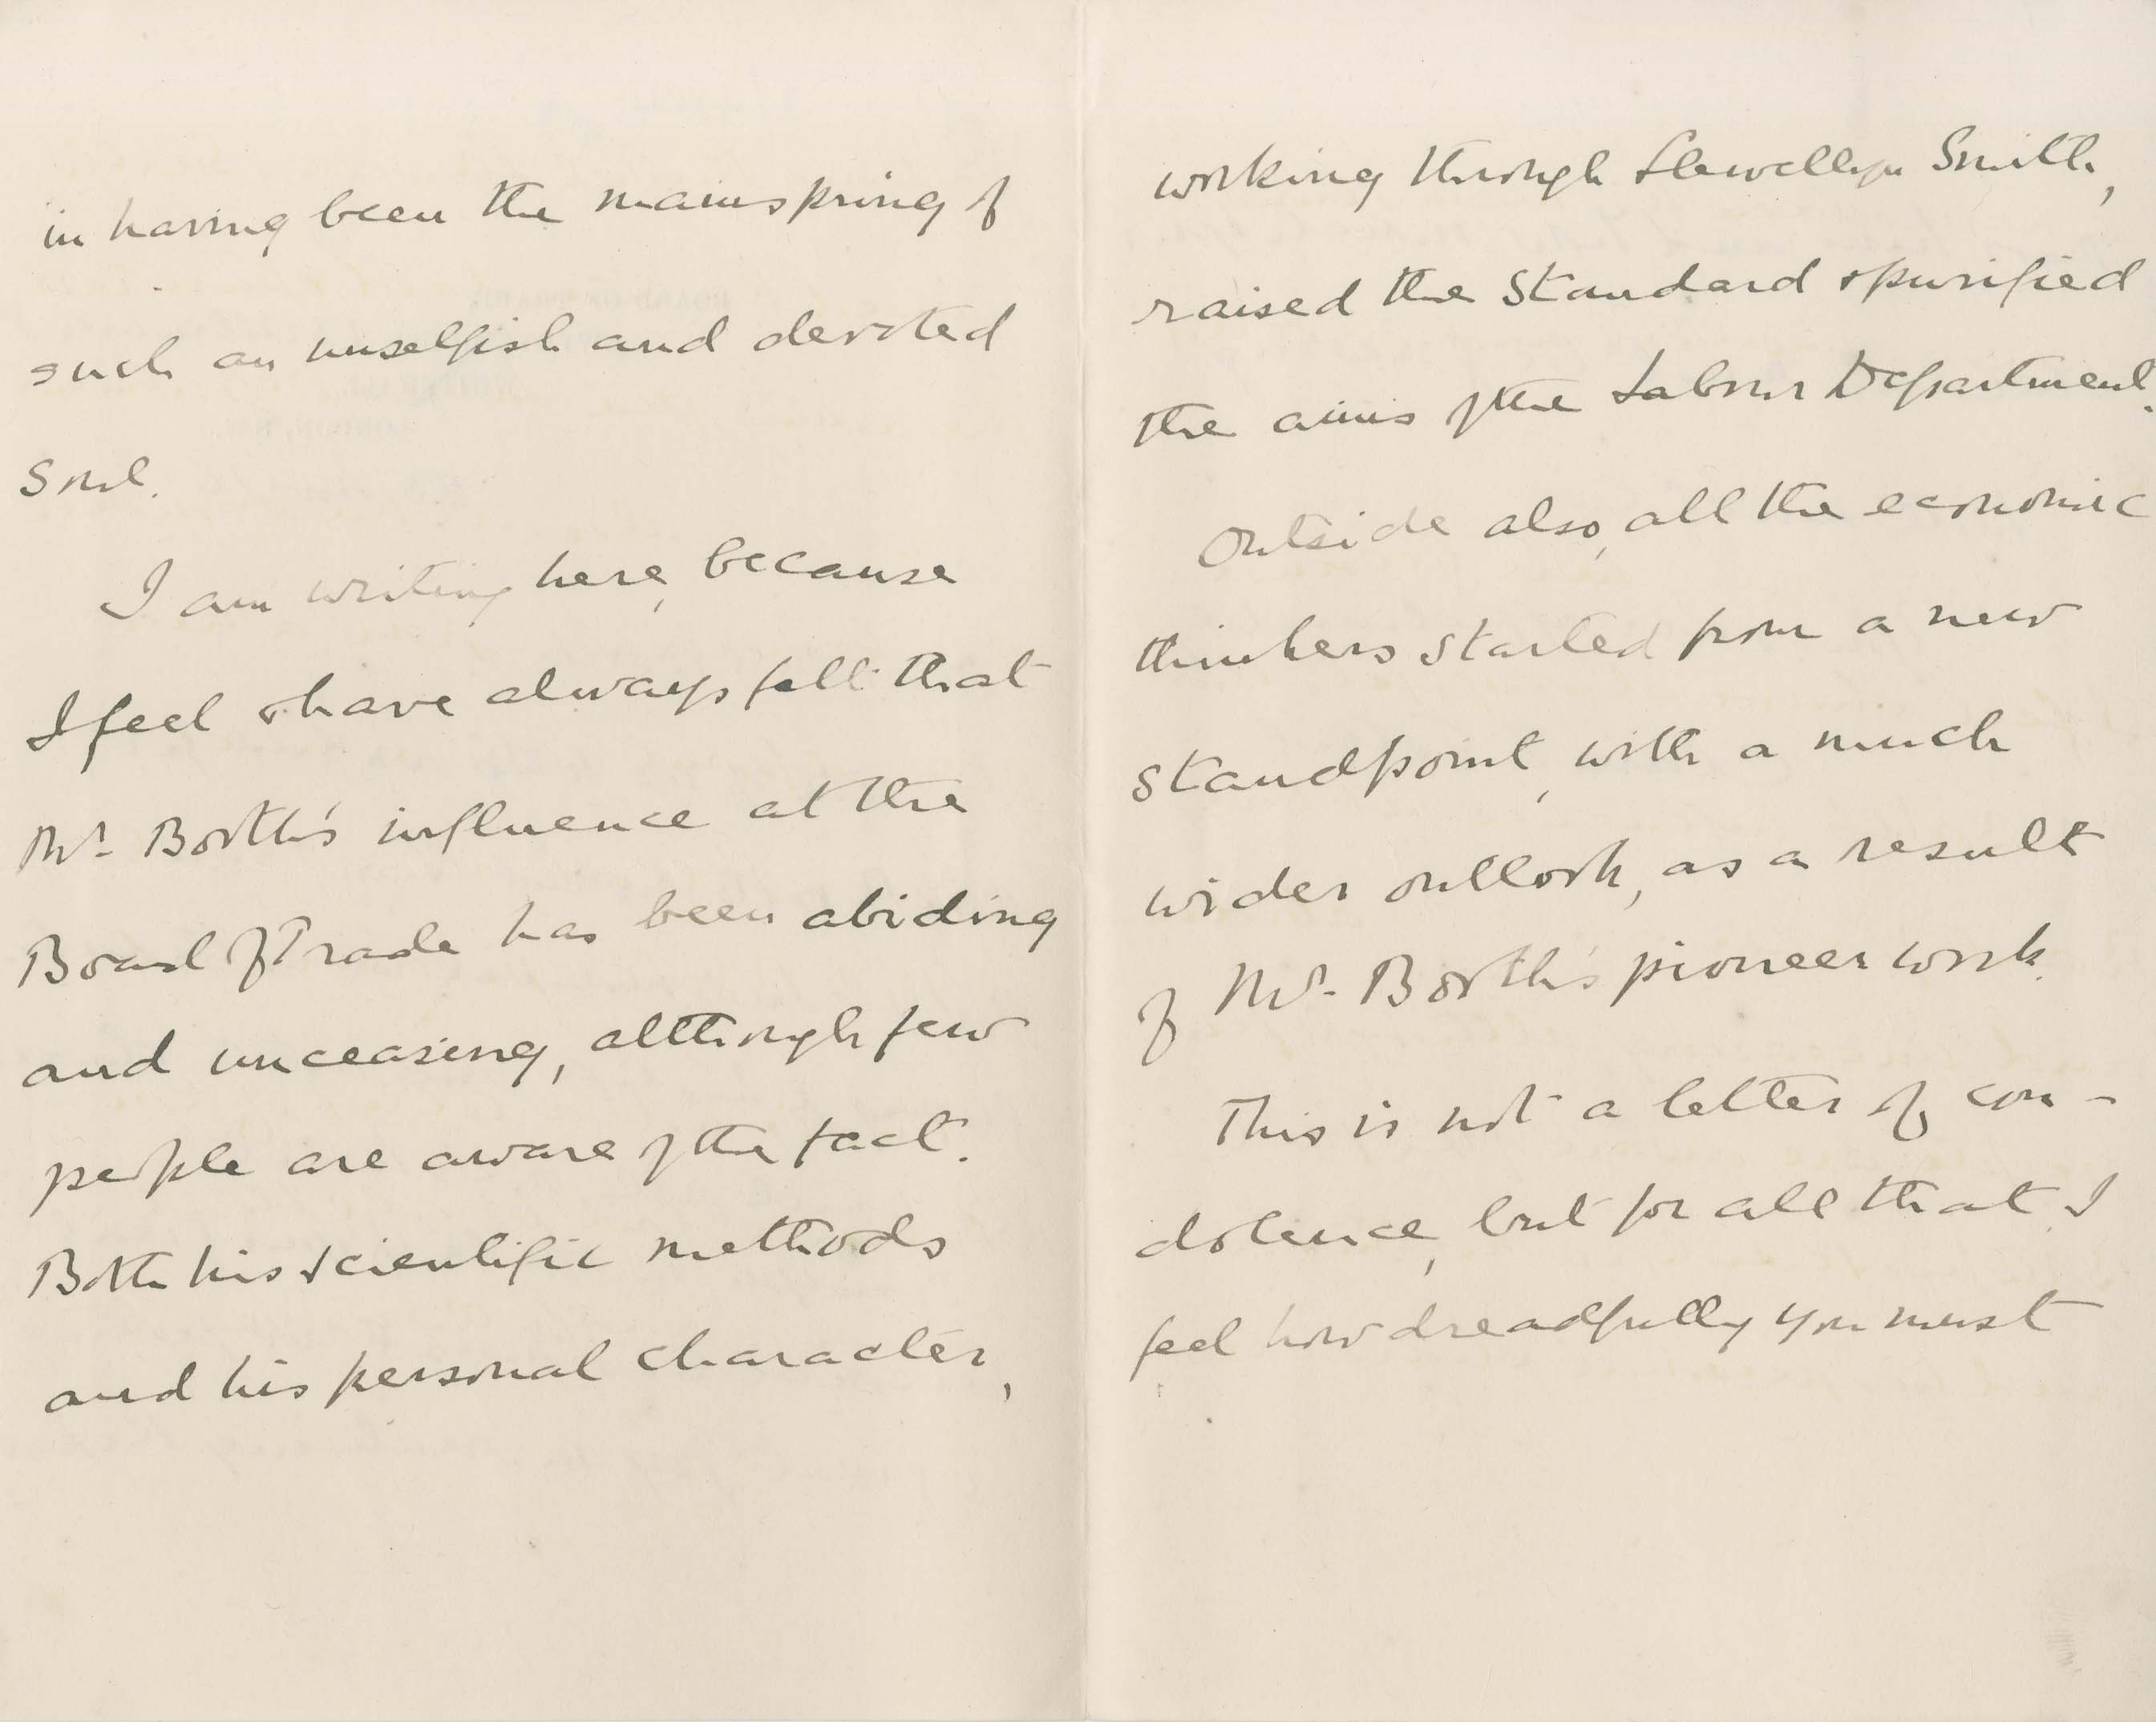 in having been the mainspring of
such an unselfish and devoted
soul.
I am writing here, because
I feel & have always felt that
Mr. Booth's influence at the
Board of Trade has been abiding
and unceasing, although few
people are aware of the fact.
Both his scientific methods
and his personal character,
working through Llewellyn Smith,
raised the standard & purified
the aims of the Labour Department.
Outside also, all the economic
thinkers started from a new
standpoint, with a much
wider outlook, as a result
of Mr. Booth's pioneer work.
This is not a letter of con-
dolence, but for all that I
feel how dreadfully you must